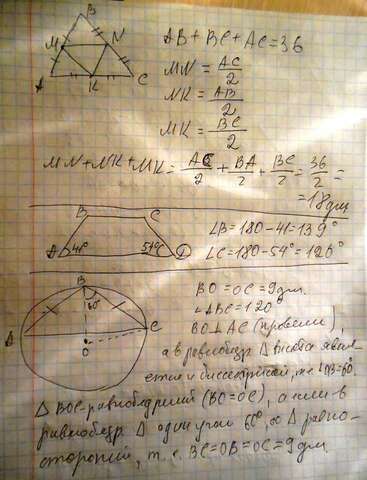 B
M
N
A
K
C
AB + BC + AC = 36
MN = AC/2
NK = AB/2
MK = BC/2
MN + NK + MK = AC/2 + BA/2 + BC/2 = 36/2 =
= 18 дм
B
C
A
41°
54°
D
∠B = 180 - 41 = 139°
∠C = 180 - 54° = 126°
B
60°
A
C
O
BO = OC = 9 дм.
∠ABC = 120°
BO ⊥ AC (провели),
а в равнобедр. Δ высота явля-
ется и биссектрисой, т.е. = 60°.
Δ BOC - равнобедренный (BO = OC), а если в
равнобедр Δ один угол 60°, то Δ равно-
сторонний, т. е. BC = OB = OC = 9 дм.